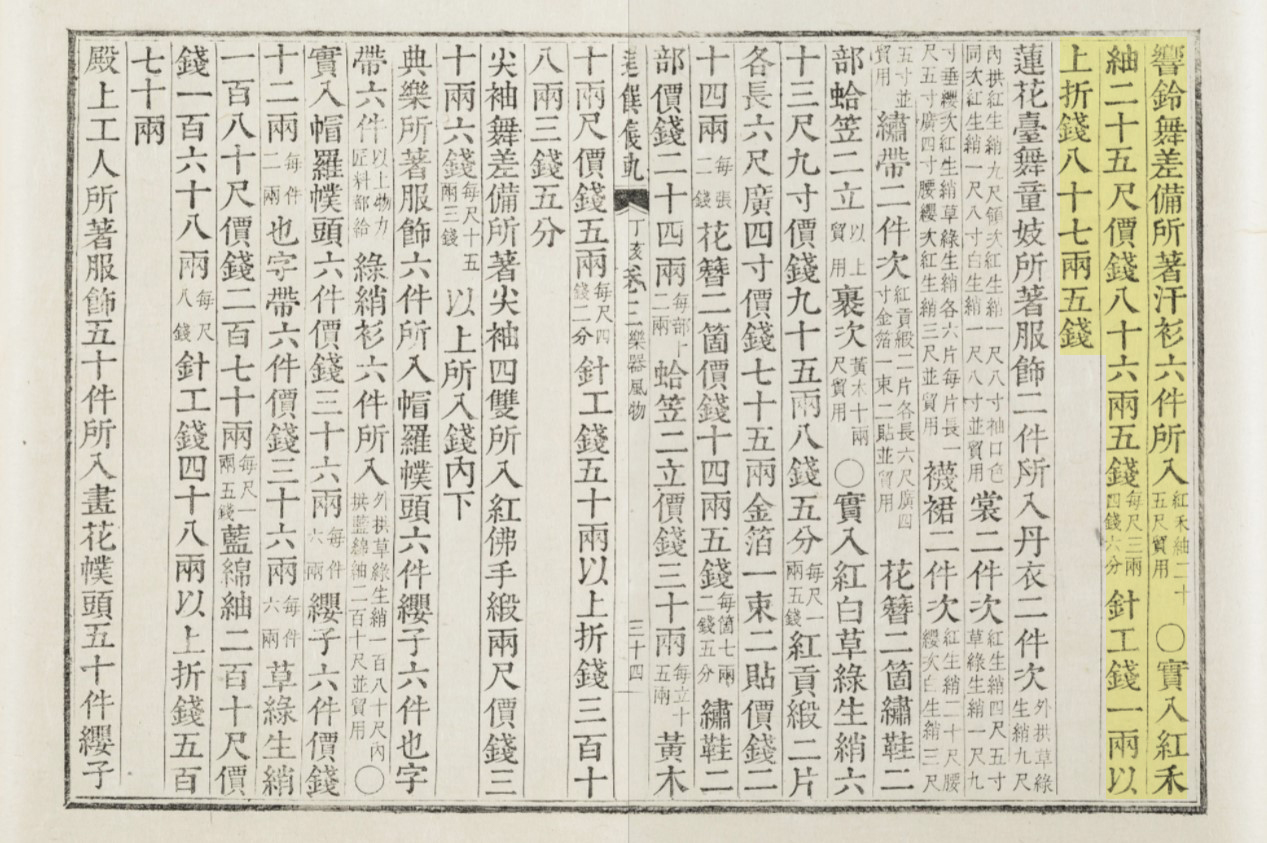 響鈴舞差備所著汗衫六件所入紅禾紬二十五尺貿用〇實入紅禾
紬二十五尺價錢八十六兩五錢每尺三兩四錢六分針工錢一兩以
上折錢八十七兩五錢
蓮花臺舞童妓所著服飾二件所入丹衣二件次外拱草綠生綃九尺
內拱紅生綃九尺領次紅生綃一尺八寸袖口色同次紅生綃一尺八寸白生綃一尺八寸並貿用裳二件次紅生綃四尺五寸草綠生綃一尺九
寸垂纓次紅生綃草綠生綃各六片每片長一尺五寸廣四寸腰纓次紅生綃三尺並貿用襪裙二件次紅生綃二十尺腰纓次白生綃三尺
五寸並貿用繡帶二件次紅貢緞二片各長六尺廣四寸金箔一束二貼並貿用花簪二箇繡鞋二
部蛤笠二立以上貿用裹次黃木十兩尺貿用〇實入紅白草綠生綃六
十三尺九寸價錢九十五兩八錢五分每尺一兩五錢紅貢緞二片
各長六尺廣四寸價錢七十五兩金箔一束二貼價錢二
十四兩每張二錢花簪二箇價錢十四兩五錢每箇七兩二錢五分繡鞋二
部價錢二十四兩每部十二兩蛤笠二立價錢三十兩每立十五兩黃木
進饌儀軌 丁亥 卷二 樂器風物 三十四
十兩尺價錢五兩每尺四錢二分針工錢五十兩以上折錢三百十
八兩三錢五分
尖袖舞差備所著尖袖四雙所入紅佛手緞兩尺價錢三
十兩六錢每尺十五兩三錢以上所入錢內下
典樂所著服飾六件所入帽羅幞頭六件纓子六件也字
帶六件以上物力匠料都給綠綃衫六件所入外拱草綠生綃一百八十尺內拱藍綿紬二百十尺並貿用〇
實入帽羅幞頭六件價錢三十六兩每件六兩纓子六件價錢
十二兩每件二兩也字帶六件價錢三十六兩每件六兩草綠生綃
一百八十尺價錢二百七十兩每尺一兩五錢藍綿紬二百十尺價
錢一百六十八兩每尺八錢針工錢四十八兩以上折錢五百
七十兩
殿上工人所著服飾五十件所入畫花幞頭五十件纓子